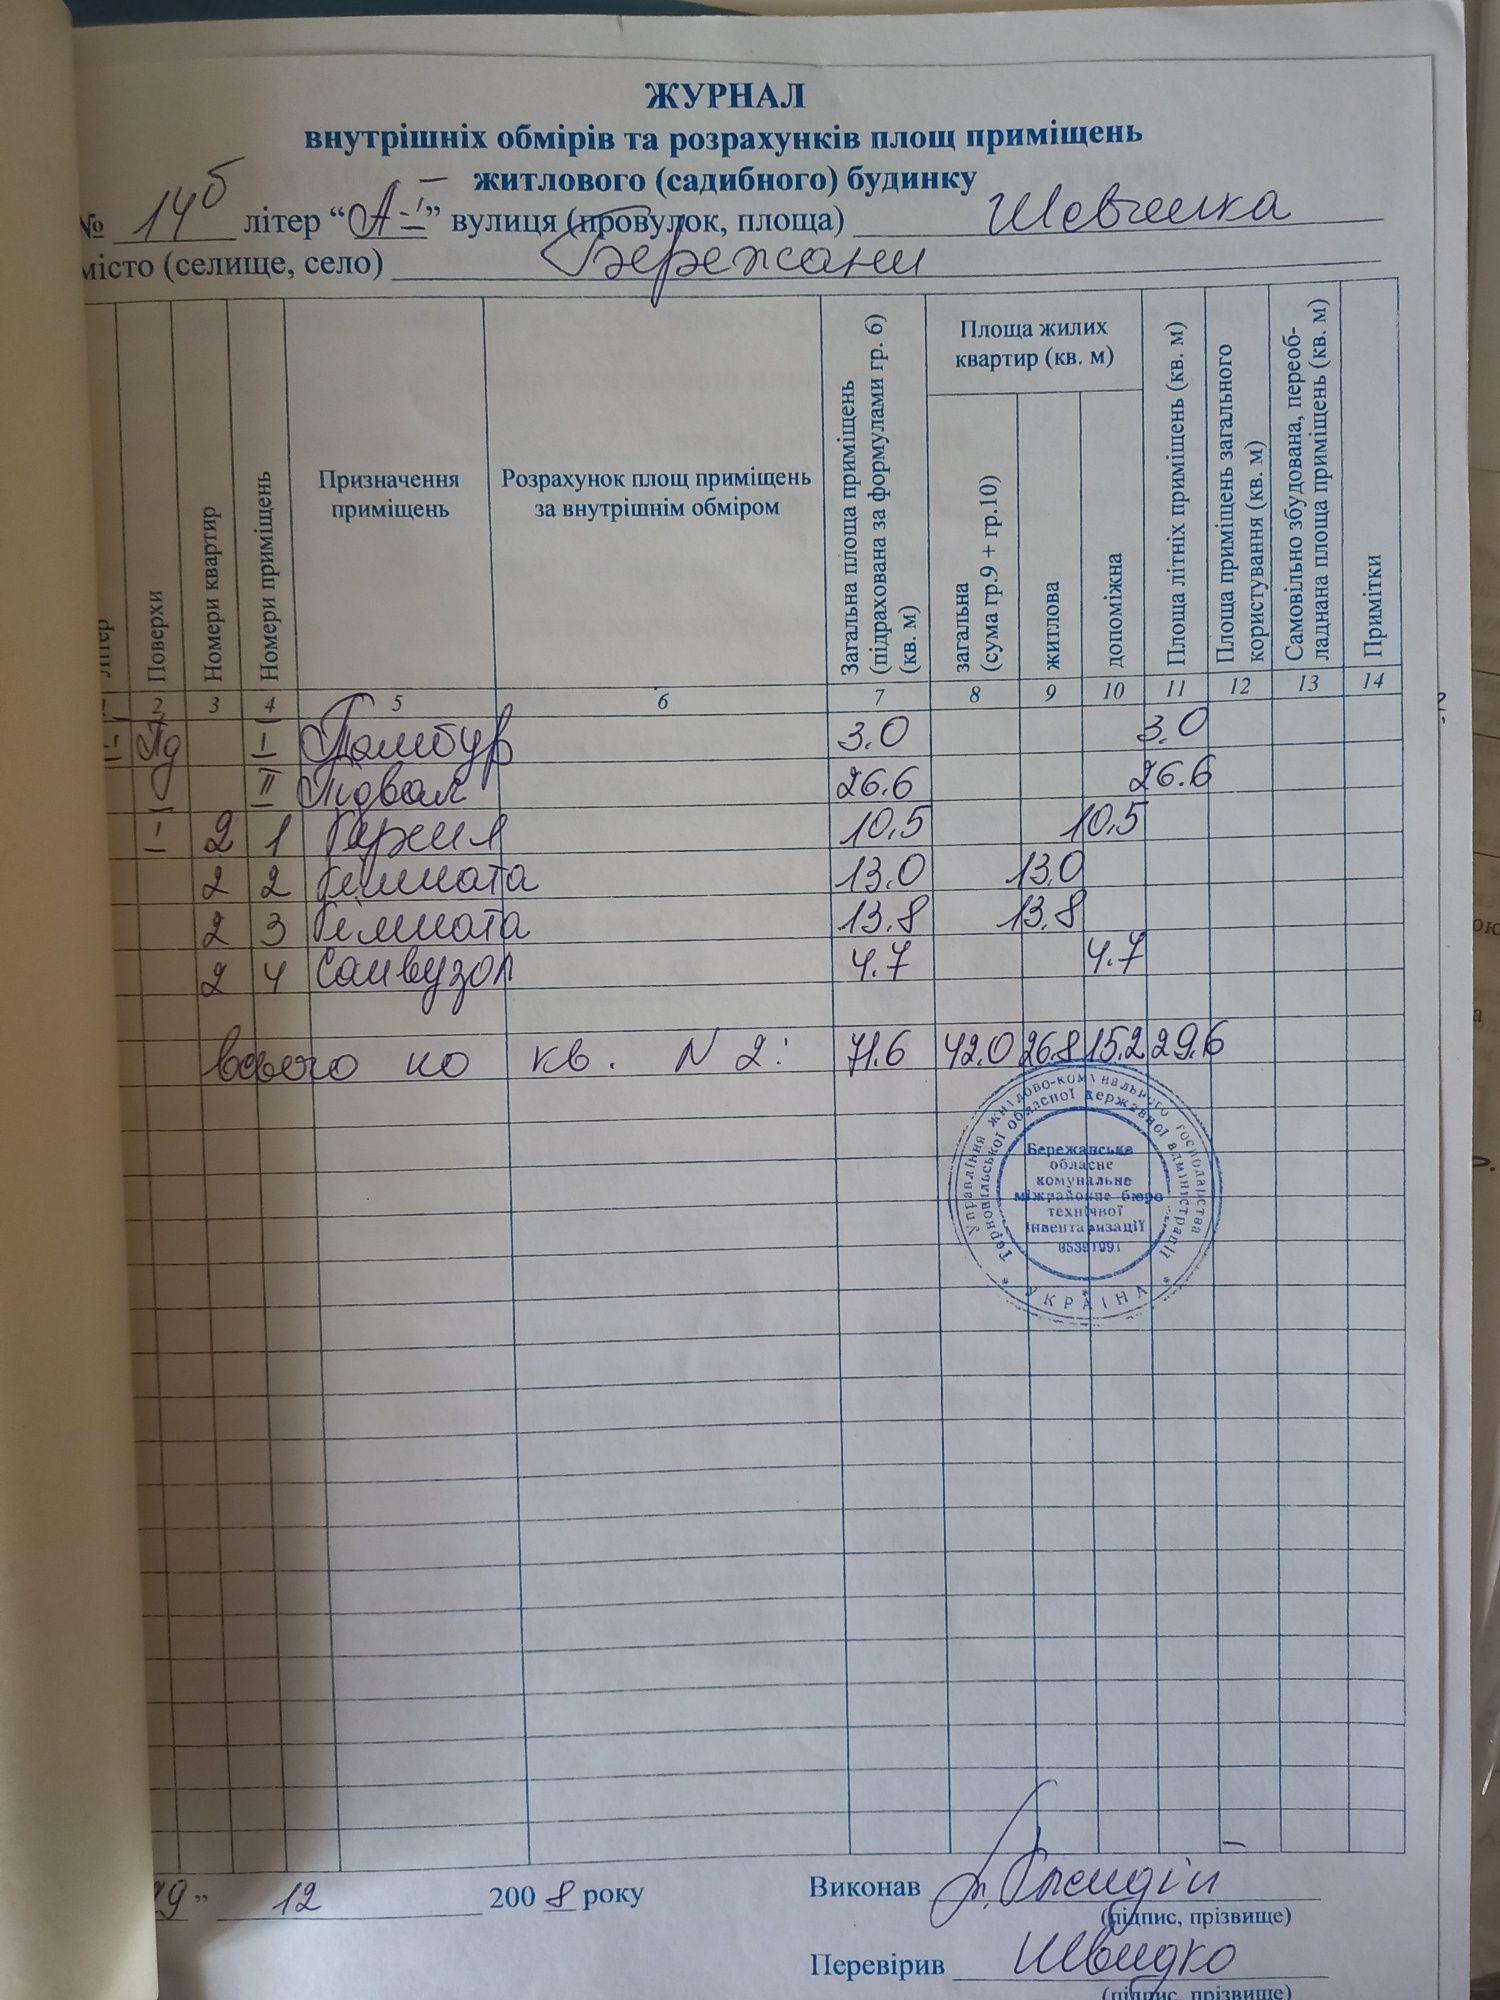 ЖУРНАЛ
внутрішніх обмірів та розрахунків площ приміщень
житлового (садибного) будинку
№ 14б літер “А-I” вулиця (провулок, площа) Шевченка
місто (селище, село) Бережани
літер
Поверхи
Номери квартир
Номери приміщень
Призначення приміщень
Розрахунок площ приміщень за внутрішнім обміром
Загальна площа приміщень (підрахована за формулами гр. 6) (кв. м)
Площа жилих квартир (кв. м)
загальна (сума гр.9 + гр.10)
житлова
допоміжна
Площа літніх приміщень (кв. м)
Площа приміщень загального користування (кв. м)
Самовільно збудована, переобладнана площа приміщень (кв. м)
Примітки
2 3 4 5 6 7 8 9 10 11 12 13 14
Пд I Тамбур 3.0 3.0
II Підвал 26.6 26.6
I 2 1 Кухня 10.5 10.5
2 2 Кімната 13.0 13.0
2 3 Кімната 13.8 13.8
2 4 Санвузол 4.7 4.7
всього по кв. N 2: 71.6 42.0 26.8 15.2 29.6
Управління житлово-комунального господарства
Тернопільської обласної державної адміністрації
Бережанське
обласне
комунальне
міжрайонне бюро
технічної
інвентаризації
* УКРАЇНА *
29” 12 2008 року
Виконав
(підпис, прізвище)
Перевірив Швидко
(підпис, прізвище)